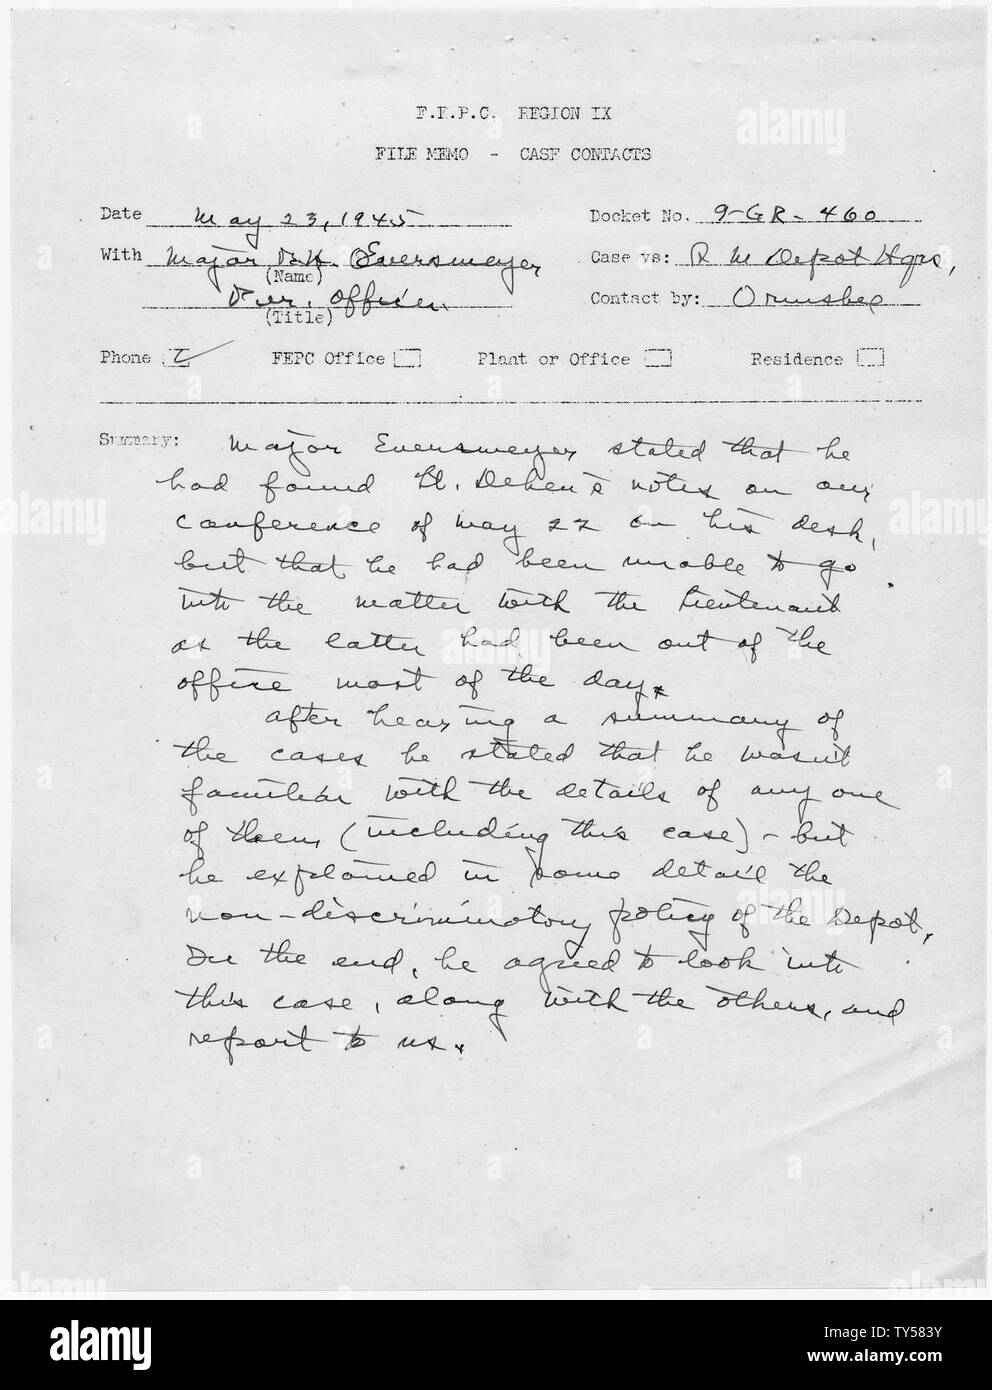 F.E.P.C. REGION IX
FILE MEMO - CASE CONTACTS
Date May 23, 1945 Docket No. 9-GR-460
With Major Eversmeyer Case vs: R M Depot Hqrs,
(Name)
Per. Officer. Contact by: Ormsbee
(Title)
Phone FEPC Office Plant or Office Residence
Summary: Major Eversmeyer stated that he
had found Lt. Deken's notes on our
conference of May 22 on his desk,
but that he had been unable to go
into the matter with the Lieutenant
as the latter had been out of the
office most of the day.
After hearing a summary of
the cases he stated that he wasn't
familiar with the details of any one
of them (including this case) - but
he explained in some detail the
non-discriminatory policy of the Depot.
In the end, he agreed to look into
this case, along with the others, and
report to us.
alamy
Image ID: TY583Y
www.alamy.com